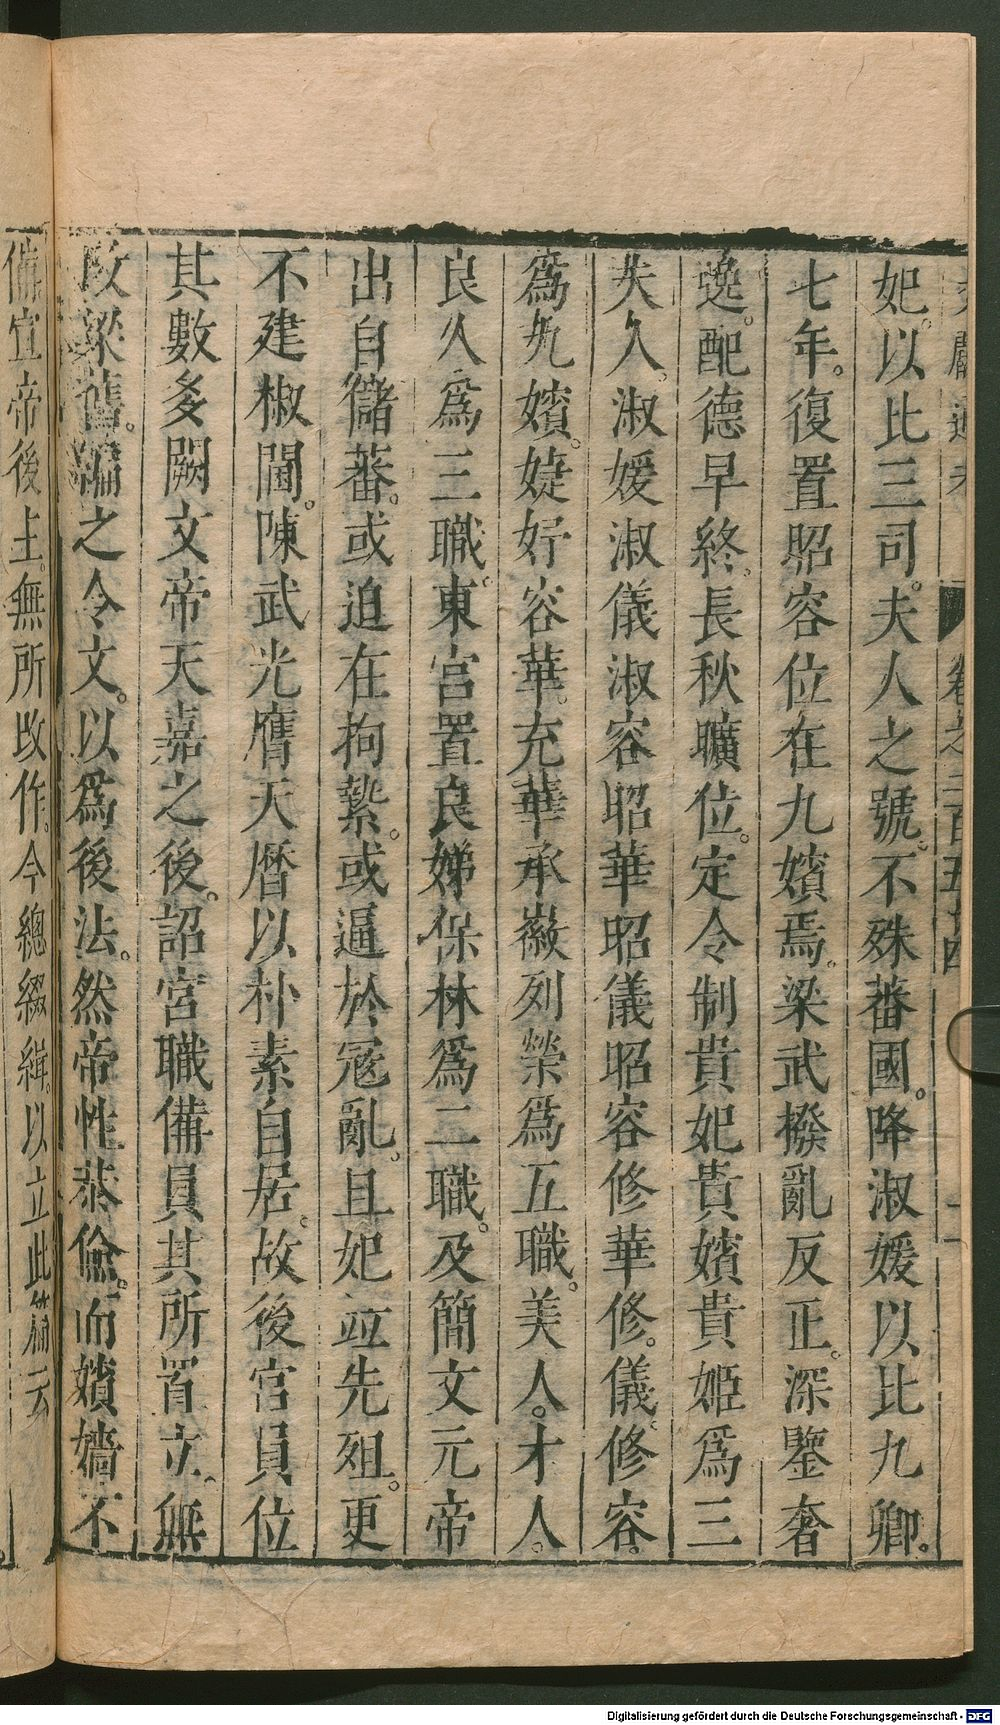 文獻通考 卷之二百五十四 二
妃。以比三司。夫人之號。不殊蕃國。降淑媛以比九卿。
七年。復置昭容位在九嬪焉。梁武撥亂反正。深鑒奢
逸。配德早終。長秋曠位。定令制貴妃貴嬪貴姬爲三
夫人。淑媛淑儀淑容昭華昭儀昭容修華修儀修容。
爲九嬪。婕妤容華。充華承徽列榮爲五職。美人。才人。
良人爲三職。東宮置良娣保林爲二職。及簡文元帝
出自儲蕃。或迫在拘縶。或逼於寇亂。且妃竝先殂。更
不建椒閫。陳武光膺天曆以朴素自居。故後宮員位
其數多闕文帝天嘉之後。詔宮職備員其所置立。無
改梁舊。編之令文。以爲後法。然帝性恭儉。而嬪嬙不
備宣帝後主。無所改作。今總綴緝。以立此篇云
Digitalisierung gefördert durch die Deutsche Forschungsgemeinschaft - DFG